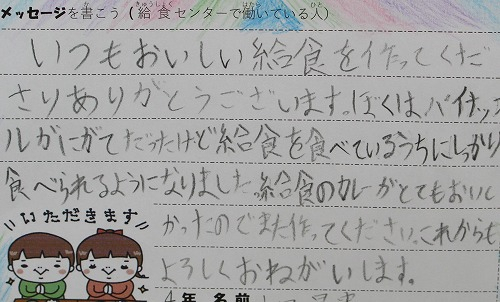 メッセージを書こう(給食センターで働いている人)
いつもおいしい給食を作ってくだ
さりありがとうございます。ぼくは、パイナップ
ルがにがてだったけど給食を食べているうちにしっかり
食べられるようになりました。給食のカレーがとてもおいし
かったのでまた作ってください。これからも
よろしくおねがいします。
いただきます
4年 名前